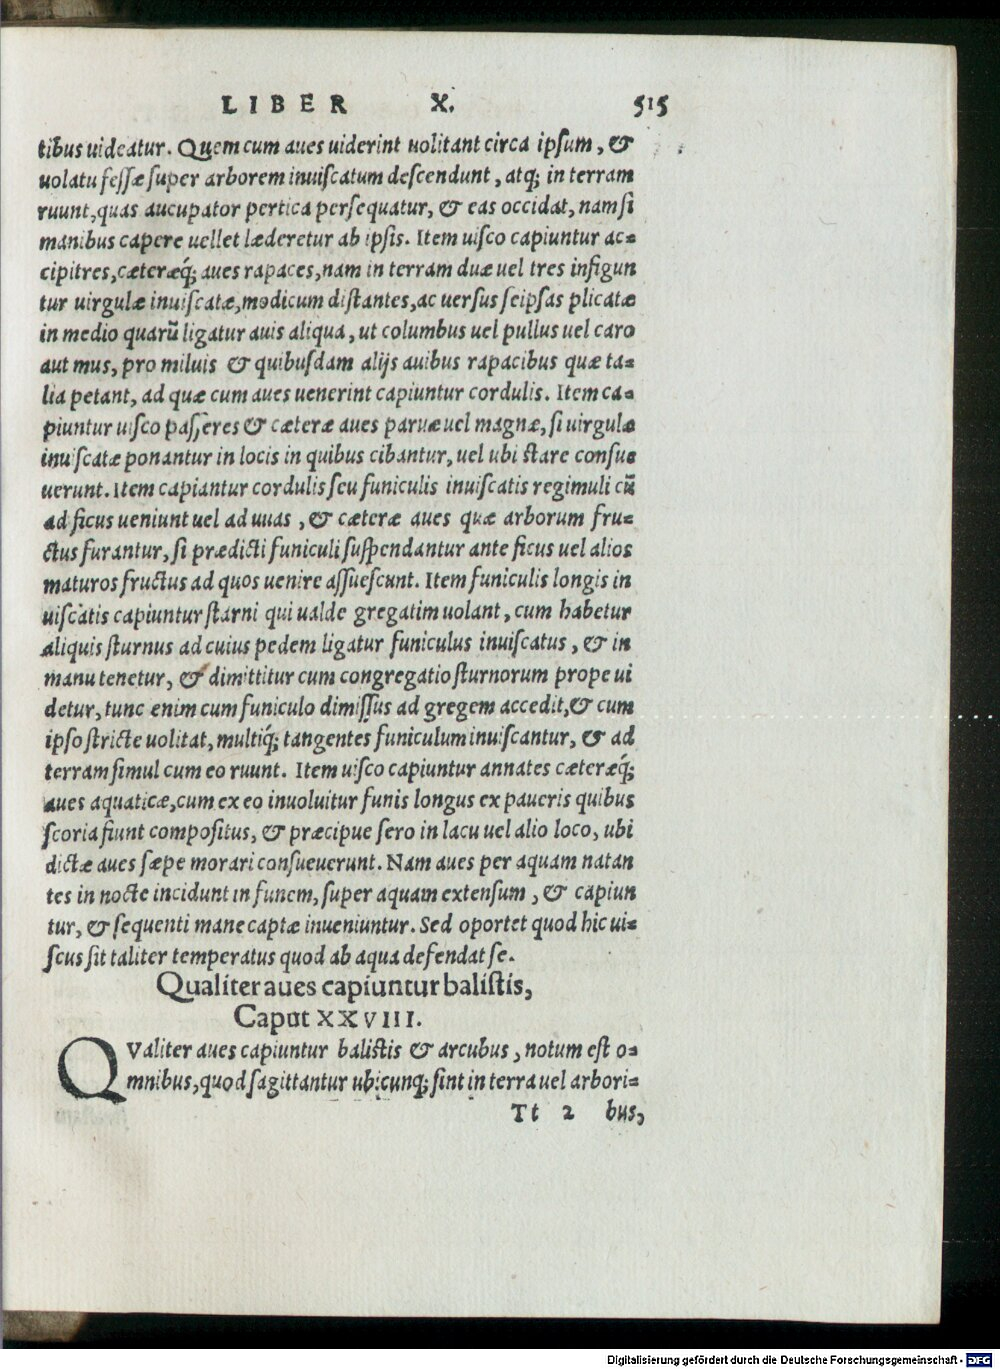 LIBER X. 515
tibus uideatur. Quem cum aues uiderint uolitant circa ipsum, &
uolatu fessæ super arborem inuiscatum descendunt, atq; in terram
ruunt, quas aucupator pertica persequatur, & eas occidat, nam si
manibus capere uellet læderetur ab ipsis. Item uisco capiuntur ac=
cipitres, cæteræq́; aues rapaces, nam in terram duæ uel tres infigun
tur uirgulæ inuiscatæ, modicum distantes, ac uersus seipsas plicatæ
in medio quarũ ligatur auis aliqua, ut columbus uel pullus uel caro
aut mus, pro miluis & quibusdam alijs auibus rapacibus quæ ta=
lia petant, ad quæ cum aues uenerint capiuntur cordulis. Item ca=
piuntur uisco passeres & cæteræ aues paruæ uel magnæ, si uirgulæ
inuiscatæ ponantur in locis in quibus cibantur, uel ubi stare consue
uerunt. Item capiantur cordulis seu funiculis inuiscatis regimuli cũ
ad ficus ueniunt uel ad uuas, & cæteræ aues quæ arborum fru=
ctus furantur, si prædicti funiculi suspendantur ante ficus uel alios
maturos fructus ad quos uenire assuescunt. Item funiculis longis in
uiscatis capiuntur starni qui ualde gregatim uolant, cum habetur
aliquis sturnus ad cuius pedem ligatur funiculus inuiscatus, & in
manu tenetur, & dimittitur cum congregatio sturnorum prope ui
detur, tunc enim cum funiculo dimissus ad gregem accedit, & cum
ipso stricte uolitat, multiq́; tangentes funiculum inuiscantur, & ad
terram simul cum eo ruunt. Item uisco capiuntur annates cæteræq́;
aues aquaticæ, cum ex eo inuoluitur funis longus ex paucris quibus
scoria fiunt compositus, & præcipue sero in lacu uel alio loco, ubi
dictæ aues sæpe morari consueuerunt. Nam aues per aquam natan
tes in nocte incidunt in funem, super aquam extensum, & capiun
tur, & sequenti mane captæ inueniuntur. Sed oportet quod hic ui=
scus sit taliter temperatus quod ab aqua defendat se.
Qualiter aues capiuntur balistis,
Caput XXVIII.
QValiter aues capiuntur balistis & arcubus, notum est o=
mnibus, quod sagittantur ubicunq; sint in terra uel arbori=
Tt 2 bus,
Digitalisierung gefördert durch die Deutsche Forschungsgemeinschaft - DFG